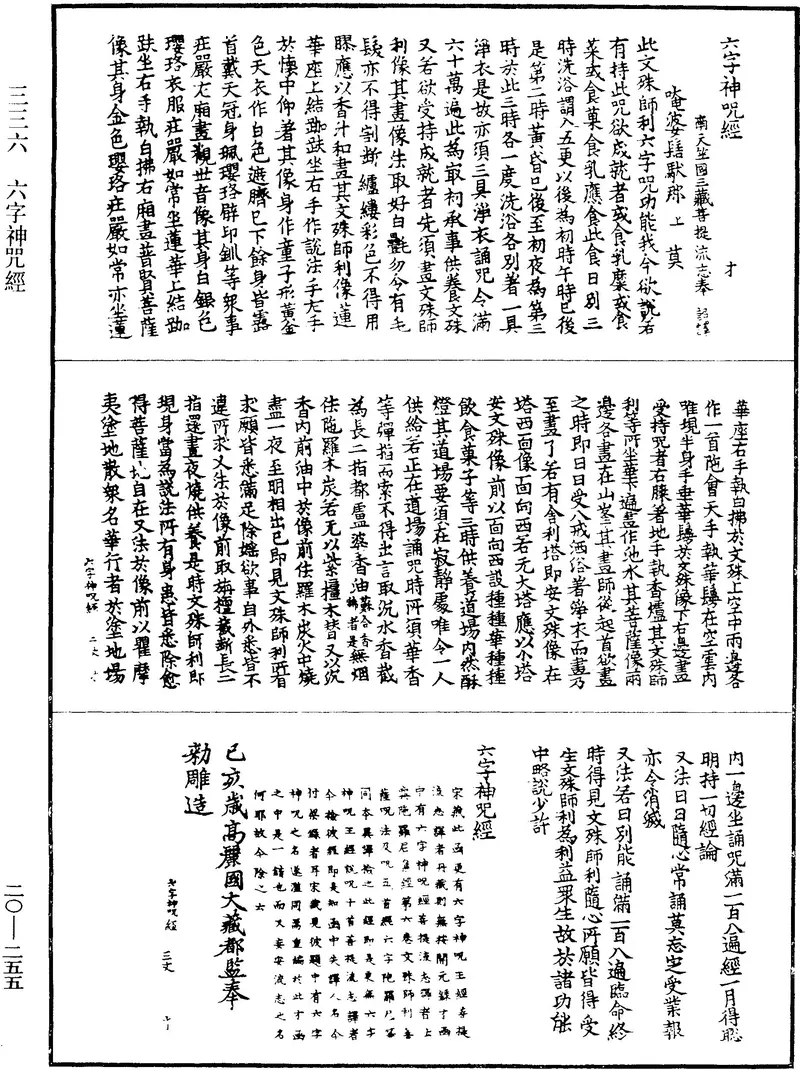 三三二六　六字神呪經
二〇―二五五
六字神呪經　才
南天竺國三藏菩提流志奉　詔譯
唵婆髻馱那上莫
此文殊師利六字呪功能我今欲說若
有持此呪欲成就者或食乳糜或食
菜或食菓食乳應食此食日別三
時洗浴謂入五更以後為初時午時已後
是第二時黃昏已後至初夜為第三
時於此三時各一度洗浴各別著一具
淨衣是故亦須三具淨衣誦呪令滿
六十萬遍此為最初承事供養文殊
又若欲受持成就者先須畫文殊師
利像其畫像法取好白氎勿令有毛
髮亦不得割斷縷彩色不得用
膠應以香汁和畫其文殊師利像蓮
華座上結跏趺坐右手作說法手左手
於懷中仰著其像身作童子形黃金
色天衣作白色遮臍已下餘身皆露
首戴天冠身珮瓔珞臂印釧等衆事
莊嚴左廂畫觀世音像其身白銀色
瓔珞衣服莊嚴如常坐蓮華上結跏
趺坐右手執白拂右廂畫普賢菩薩
像其身金色瓔珞莊嚴如常亦坐蓮
華座右手執白拂於文殊上空中兩邊各
作一首陁會天手執華鬘在空雲內
唯現半身手垂華鬘於文殊像下右邊畫
受持呪者右膝著地手執香爐其文殊師
利等所坐華下遍畫作池水其菩薩像兩
邊各畫在山峯其畫師從起首欲畫
之時即日日受八戒洒俗著淨衣而畫乃
至畫了若有舍利塔即安文殊像在
塔西面像面向西若無大塔應以小塔
安文殊像前以面向西設種種華種種
飲食菓子等三時供養道場內然酥
燈其道場要須在寂靜處唯令一人
供給若正在道場誦呪時所須華香
等彈指而索不得出言取沉水香截
為長二指都盧婆香油蘇合香稱者是無烟
佉陁羅木炭若無以紫檀木替又以沉
香內前油中於像前佉羅木炭火中燒
盡一夜至明相出已即見文殊師利所有
求願皆悉滿足除婬欲事自外悉皆不
違所求又法於像前取栴檀截斷長二
指還晝夜燒供養是時文殊師利即
現身當為說法所有身患皆悉除愈
得菩薩地自在又法於像前以瞿摩
夷塗地散衆名華行者於塗地場
六字神呪經　二丈　才
內一邊坐誦呪滿一百八遍經一月得聡
明持一切經論
又法日日隨心常誦莫忘定受業報
亦令消滅
又法若日別能誦滿一百八遍臨命終
時得見文殊師利隨心所願皆得受
生文殊師利為利益衆生故於諸功能
中略說少許
六字神呪經
宋藏此函更有六字神呪王經菩提
流志譯者丹藏則無按開元錄才函
中有六字神呪經菩提流志譯者上
與陁羅尼集經第六卷文殊師利菩
薩呪法及呪五首經六字陁羅尼等
同本異譯撿之此經即是更無六字
神呪王經說呪十首菩提流志譯者
今撿彼經即是知函中失譯人名今
付梁錄者耳宋藏見彼題中有六字
神呪之名遂濫同焉重編於此才函
之中是一錯也而又妄安流志之名
何耶故今除之六
己亥歲高麗國大藏都監奉
勅雕造
六字神呪經　三丈　才